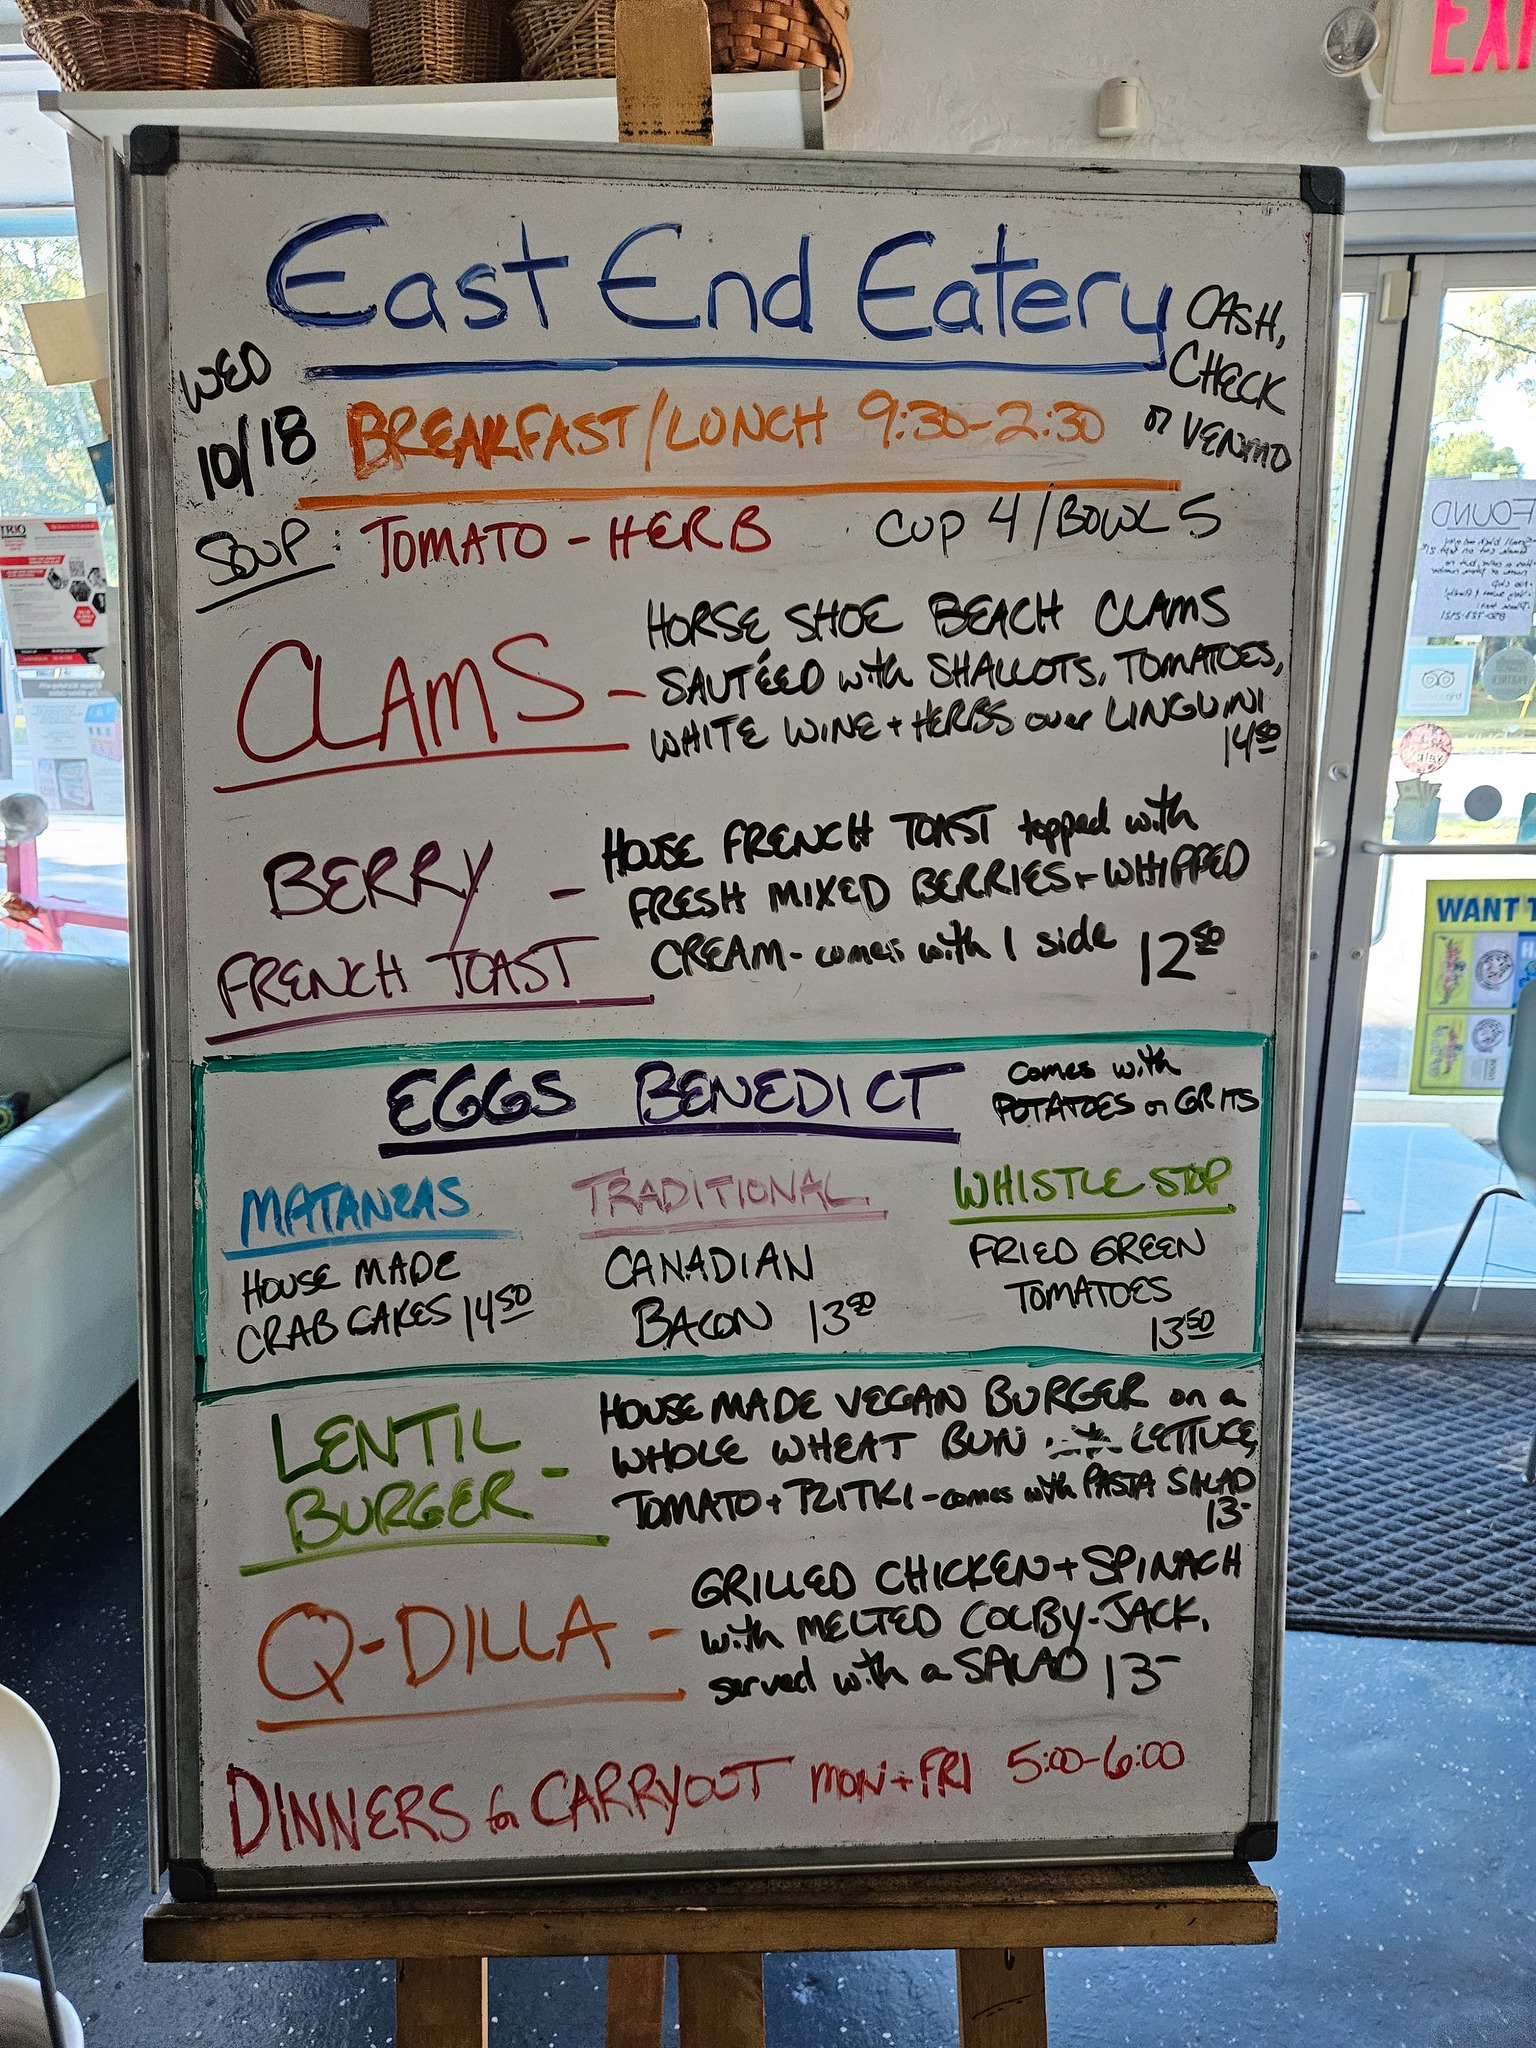 EXI
East End Eatery
CASH,
CHECK
or VENMO
WED
10/18
BREAKFAST/LUNCH 9:30-2:30
SOUP: TOMATO - HERB CUP 4/BOWL 5
CLAMS -
HORSE SHOE BEACH CLAMS
SAUTÉED with SHALLOTS, TOMATOES,
WHITE WINE + HERBS over LINGUINI
14.50
BERRY -
FRENCH TOAST
HOUSE FRENCH TOAST topped with
FRESH MIXED BERRIES + WHIPPED
CREAM - comes with 1 side 12.50
EGGS BENEDICT
Comes with
POTATOES or GRITS
MATANZAS
HOUSE MADE
CRAB CAKES 14.50
TRADITIONAL
CANADIAN
BACON 13.50
WHISTLE STOP
FRIED GREEN
TOMATOES
13.50
LENTIL
BURGER -
HOUSE MADE VEGAN BURGER on a
WHOLE WHEAT BUN with LETTUCE,
TOMATO + TZITKI - comes with PASTA SALAD
13-
Q-DILLA -
GRILLED CHICKEN + SPINACH
with MELTED COLBY-JACK,
served with a SALAD 13-
DINNERS for CARRYOUT MON + FRI 5:00-6:00
FOUND
WANT T
TRIO